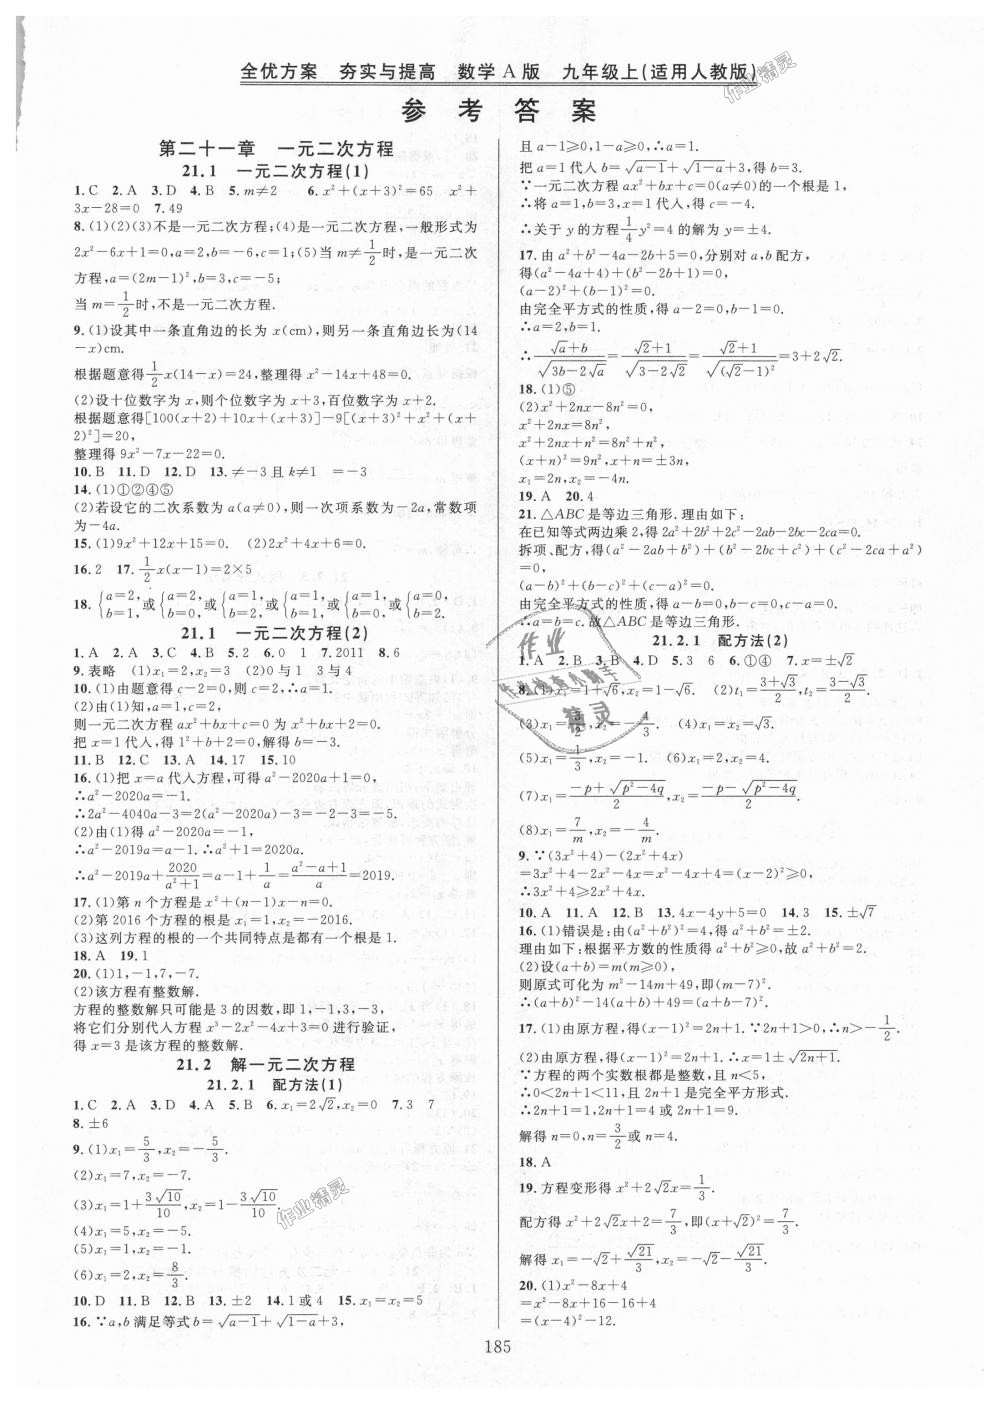 全优方案 夯实与提高 数学A版 九年级上(适用人教版)
参考答案
第二十一章 一元二次方程
21.1 一元二次方程(1)
1.C 2.A 3.D 4.B 5.m≠2 6.x²+(x+3)²=65 x²+
3x-28=0 7.49
8.(1)(2)(3)不是一元二次方程;(4)是一元二次方程,一般形式为
2x²-6x+1=0,a=2,b=-6,c=1;(5)当m≠1/2时,是一元二次
方程,a=(2m-1)²,b=3,c=-5;
当m=1/2时,不是一元二次方程.
9.(1)设其中一条直角边的长为x(cm),则另一条直角边长为(14
-x)cm.
根据题意得1/2x(14-x)=24,整理得x²-14x+48=0.
(2)设十位数字为x,则个位数字为x+3,百位数字为x+2.
根据题意得[100(x+2)+10x+(x+3)]-9[(x+3)²+x²+(x+
2)²]=20,
整理得9x²-7x-22=0.
10.B 11.D 12.D 13.≠-3且k≠1 =-3
14.(1)①②④⑤
(2)若设它的二次系数为a(a≠0),则一次项系数为-2a,常数项
为-4a.
15.(1)9x²+12x+15=0. (2)2x²+4x+6=0.
16.2 17.1/2x(x-1)=2×5
18.{a=2,b=1,或{a=2,b=0,或{a=1,b=2,或{a=1,b=1,或{a=0,b=2.
21.1 一元二次方程(2)
1.A 2.A 3.C 4.B 5.2 6.0 1 7.2011 8.6
9.表略 (1)x₁=2,x₂=3 (2)0与1 3与4
10.(1)由题意得c-2=0,则c=2.
(2)由(1)知,a=1,c=2,
则一元二次方程ax²+bx+c=0为x²+bx+2=0.
把x=1代人,得1²+b+2=0,解得b=-3.
11.B 12.C 13.A 14.17 15.10
16.(1)把x=a代入方程,可得a²-2020a+1=0,
∴a²-2020a=-1.
∴2a²-4040a-3=2(a²-2020a)-3=-2-3=-5.
(2)由(1)得a²-2020a=-1,
∴a²-2019a=a-1.∴a²+1=2020a.
∴a²-2019a+2020/(a²+1)=a-1+1/a=(a²-a+1)/a=2019.
17.(1)第n个方程是x²+(n-1)x-n=0.
(2)第2016个方程的根是x₁=1,x₂=-2016.
(3)这列方程的根的一个共同特点是都有一个根是1.
18.A 19.1
20.(1)1,-1,7,-7.
(2)该方程有整数解.
方程的整数解只可能是3的因数,即1,-1,3,-3,
将它们分别代入方程x³-2x²-4x+3=0进行验证,
得x=3是该方程的整数解.
21.2 解一元二次方程
21.2.1 配方法(1)
1.C 2.A 3.D 4.A 5.B 6.x₁=2√2,x₂=0 7.3 7
8.±6
9.(1)x₁=5/3,x₂=-5/3.
(2)x₁=7,x₂=-7.
(3)x₁=1+3√10/10,x₂=1-3√10/10.
(4)x₁=5,x₂=-5.
(5)x₁=1,x₂=-2.
(6)x₁=2,x₂=8/3.
10.D 11.B 12.B 13.±2 14.1或4 15.x₁=x₂=5
16.∵a,b满足等式b=√(a-1)+√(1-a)+3,
且a-1≥0,1-a≥0,∴a=1.
把a=1代入b=√(a-1)+√(1-a)+3,得b=3.
∵一元二次方程ax²+bx+c=0(a≠0)的一个根是1,
∴将a=1,b=3,x=1代人,得c=-4.
∴关于y的方程1/4y²=4的解为y=±4.
17.由a²+b²-4a-2b+5=0,分别对a,b配方,
得(a²-4a+4)+(b²-2b+1)=0.
(a-2)²+(b-1)²=0.
由完全平方式的性质,得a-2=0,b-1=0.
∴a=2,b=1.
∴(√a+b)/√(3b-2√a)=(√2+1)/√(3-2√2)=(√2+1)/√((√2-1)²)=3+2√2.
18.(1)⑤
(2)x²+2nx-8n²=0,
x²+2nx=8n²,
x²+2nx+n²=8n²+n²,
(x+n)²=9n²,x+n=±3n,
x₁=2n,x₂=-4n.
19.A 20.4
21.△ABC是等边三角形.理由如下:
在已知等式两边乘2,得2a²+2b²+2c²-2ab-2bc-2ca=0.
拆项、配方,得(a²-2ab+b²)+(b²-2bc+c²)+(c²-2ca+a²)
=0,
(a-b)²+(b-c)²+(c-a)²=0.
由完全平方式的性质,得a-b=0,b-c=0,c-a=0.
∴a=b=c.故△ABC是等边三角形.
21.2.1 配方法(2)
1.A 2.B 3.B 4.D 5.3 6 6.①④ 7.x=±√2
8.(1)x₁=1+√6,x₂=1-√6. (2)t₁=(3+√3)/2,t₂=(3-√3)/2.
(3)x₁=3/2,x₂=-4/3. (4)x₁=x₂=√3.
(5)x₁=1/3,x₂=-1. (6)x₁=2,x₂=-4.
(7)x₁=(-p+√(p²-4q))/2,x₂=(-p-√(p²-4q))/2.
(8)x₁=7/m,x₂=-4/m.
9.∵(3x²+4)-(2x²+4x)
=3x²+4-2x²-4x=x²-4x+4=(x-2)²≥0,
∴3x²+4≥2x²+4x.
10.A 11.A 12.B 13.4x-4y+5=0 14.3 15.±√7
16.(1)错误是:由(a²+b²)²=4,得a²+b²=±2.
理由如下:根据平方数的性质得a²+b²≥0,故a²+b²=2.
(2)设(a+b)=m(m≥0),
则原式可化为m²-14m+49,即(m-7)².
∴(a+b)²-14(a+b)+49=(a+b-7)².
17.(1)由原方程,得(x-1)²=2n+1.∵2n+1>0,∴n>-1/2.
(2)由原方程,得(x-1)²=2n+1.∴x=1±√(2n+1).
∵方程的两个实数根都是整数,且n<5,
∴0<2n+1<11,且2n+1是完全平方形式.
∴2n+1=1,2n+1=4或2n+1=9.
解得n=0,n=3/2或n=4.
18.A
19.方程变形得x²+2√2x=1/3.
配方得x²+2√2x+2=7/3,即(x+√2)²=7/3.
解得x₁=-√2+√21/3,x₂=-√2-√21/3.
20.(1)x²-8x+4
=x²-8x+16-16+4
=(x-4)²-12.
185
作业精灵
作业精灵
作业
作业检查小助手
精灵